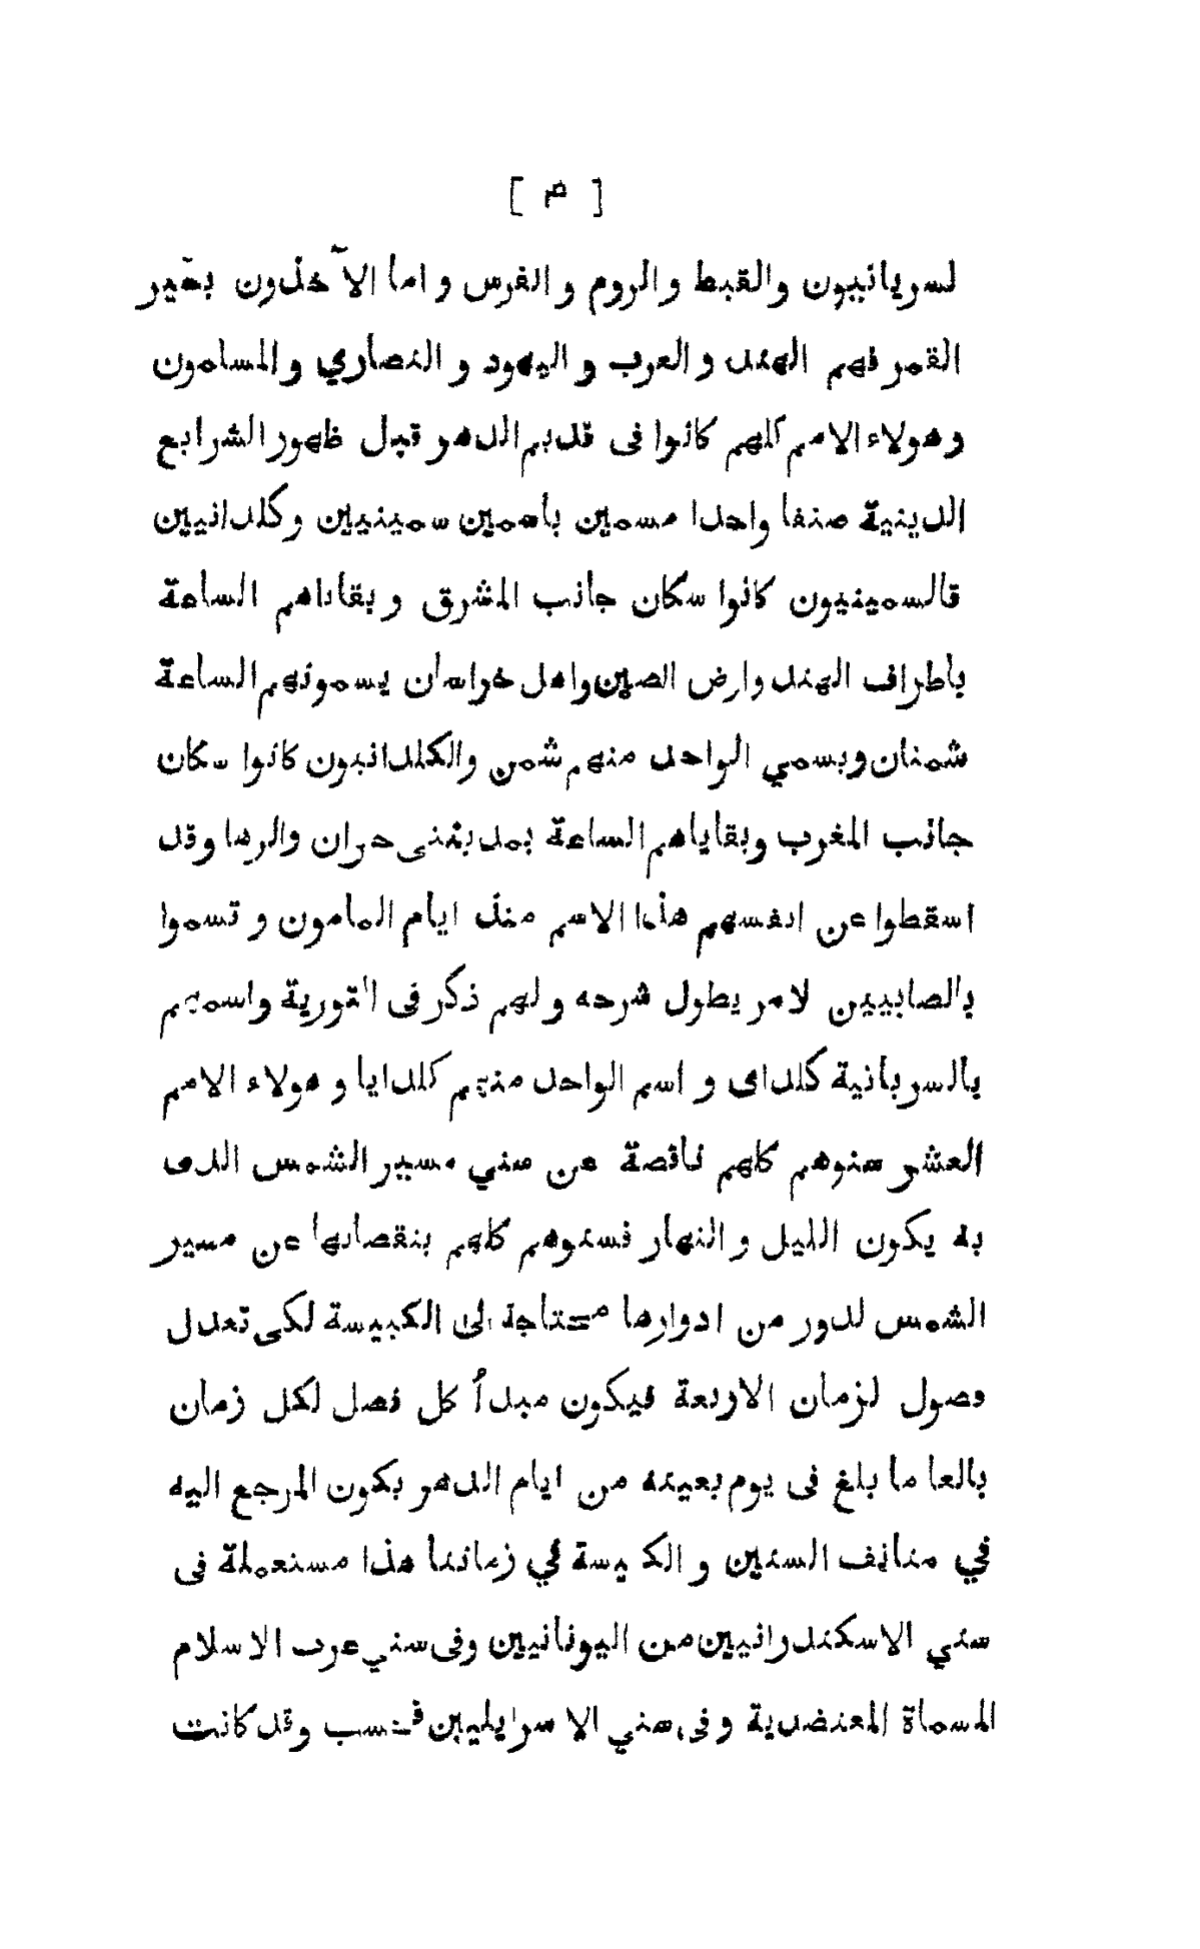 [ ۳ ]
لسريانيون والقبط و الروم و الفرس و اما الآخذون بمسير
القمر فهم الهند و العرب و اليهود و النصاري و المسلمون
و هولاء الامم كلهم كانوا فى قديم الدهر قبل ظهور الشرايع
الدينية صنفا واحدا مسمين باسمين سمينيين و كلدانيين
فالسمينيون كانوا سكان جانب المشرق و بقاياهم الساعة
باطراف الهند وارض الصين واهل خراسان يسمونهم الساعة
شمنان ويسمي الواحد منهم شمن والكلدانيون كانوا سكان
جانب المغرب وبقاياهم الساعة بمدينتى حران والرها وقد
اسقطوا عن انفسهم هذا الاسم منذ ايام المامون و تسموا
بالصابيين لامر يطول شرحه و لهم ذكر فى التورية واسمهم
بالسريانية كلداى و اسم الواحد منهم كلدايا و هولاء الامم
العشر سنوهم كلهم ناقصة عن سني مسير الشمس الذى
به يكون الليل و النهار فسنوهم كلهم بنقصانها عن مسير
الشمس لدور من ادوارها محتاجة الى الكبيسة لكى تعدل
فصول لزمان الاربعة فيكون مبدأ كل فصل لكل زمان
بالعا ما بلغ فى يوم بعينه من ايام الدهر يكون المرجع اليه
في منانف السنين و الكبيسة في زماننا هذا مستعملة فى
سني الاسكندرانيين من اليونانيين وفى سني عرب الاسلام
المسماة المعتضدية و فى سني الاسرايليين فحسب وقد كانت